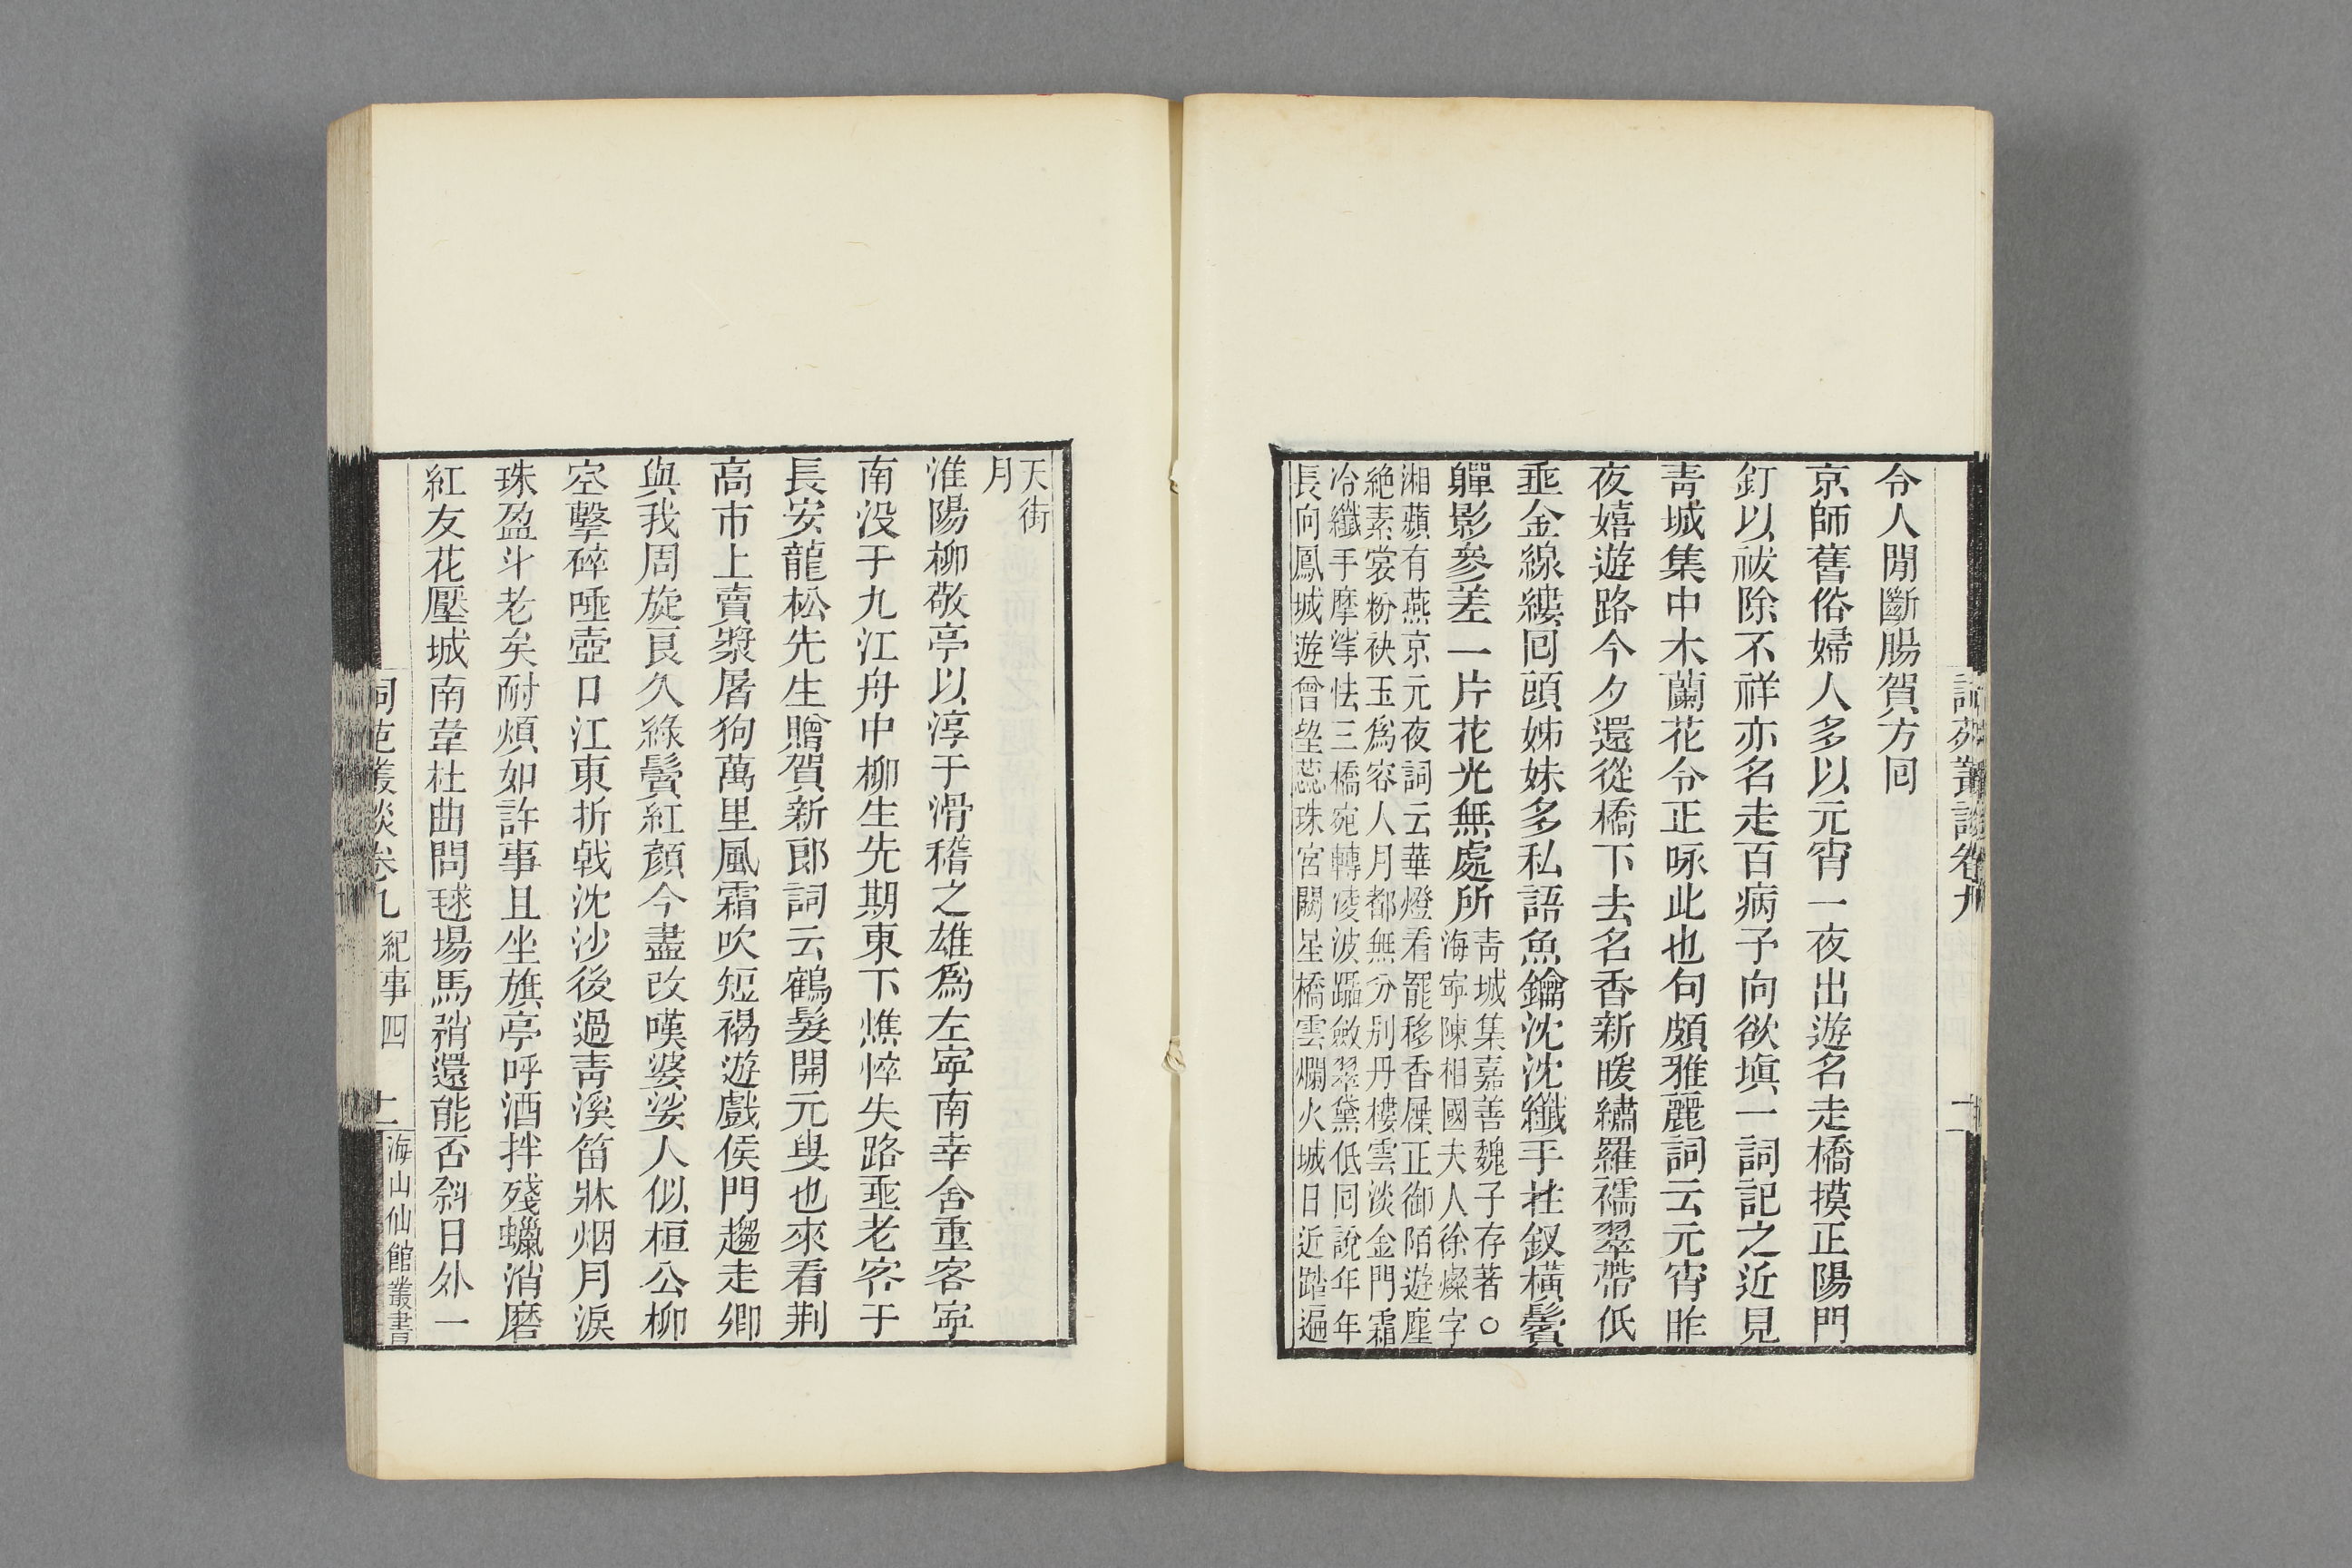 令人閒斷腸賀方回
京師舊俗婦人多以元宵一夜出遊名走橋摸正陽門
釘以祓除不祥亦名走百病予向欲塡一詞記之近見
靑城集中木蘭花令正咏此也句頗雅麗詞云元宵昨
夜嬉遊路今夕還從橋下去名香新暖繡羅襦翠帶低
垂金線縷回頭姊妹多私語魚鑰沈沈纖手拄釵橫鬢
嚲影參差一片花光無處所
靑城集嘉善魏子存著○
海寧陳相國夫人徐燦字
湘蘋有燕京元夜詞云華燈看罷移香屧正御陌遊塵
絶素裳粉袂玉爲容人月都無分別丹樓雲淡金門霜
冷纖手摩挲怯三橋宛轉凌波躡斂翠黛低回說年年
長向鳳城遊曾望蕊珠宮闕星橋雲爛火城日近踏遍
詞苑叢談卷九
十二
天街
月
淮陽柳敬亭以淳于滑稽之雄爲左寧南幸舍重客寧
南没于九江舟中柳生先期東下憔悴失路垂老客于
長安龍松先生贈賀新郎詞云鶴髮開元叟也來看荆
高市上賣漿屠狗萬里風霜吹短褐遊戲侯門趨走卿
與我周旋良久綠鬢紅顔今盡改嘆婆娑人似桓公柳
空擊碎唾壺口江東折戟沈沙後過靑溪笛牀烟月淚
珠盈斗老矣耐煩如許事且坐旗亭呼酒拌殘蠟消磨
紅友花壓城南韋杜曲問毬場馬矟還能否斜日外一
詞苑叢談卷九 紀事四
十二
海山仙館叢書